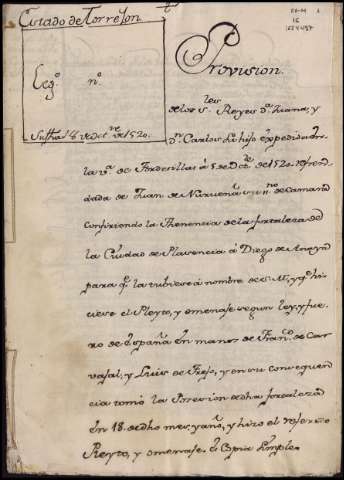 Estado de Torrejon
Leg.º n.º
Su fha 18 de Dec.re de 1520.
Provision
de los S.res Reyes D.ª Juana, y
D.n Carlos su hijo expedida en
la v.ª de Tordesillas á 5 de Dec.re de 1520. refren-
dada de Juan de
confiriendo la Thenencia de la fortaleza de
la Ciudad de Plasencia á Diego de Anaya
para q.e la tubiese á nombre de S. M. y q.e hi-
ciese el Pleyto, y omenaje segun ley, y fue-
ro de España en manos de Fran.co de Car-
vajal, y Luis de Trejo, y en su consequen-
cia tomó la Posesion de dha fortaleza
en 18 de dho mes, y año, y hizo el referido
Pleyto, y omenaje. Es Copia simple.